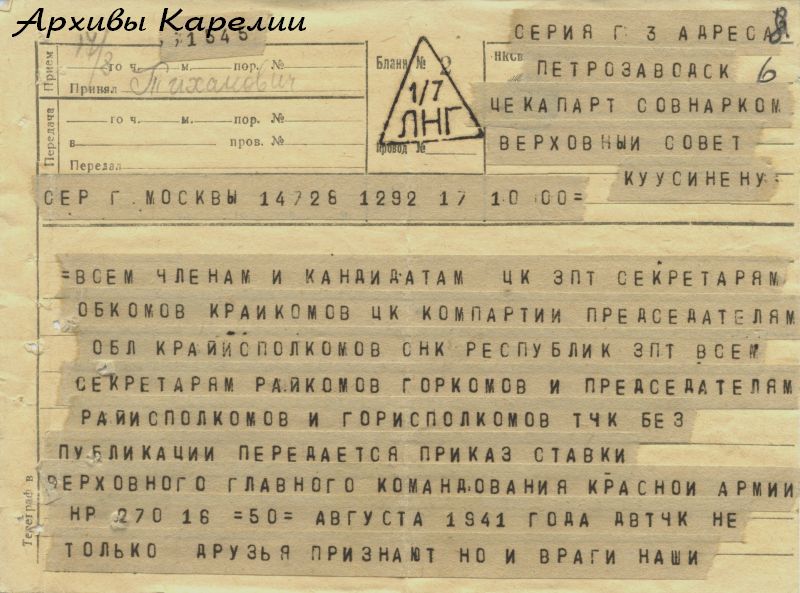 Архивы Карелии
1545
Прием
го ч. м. пор. №
Принял Тиханович
Передача
го ч. м. пор. №
в пров. №
Передал
Бланк № 2
1/7
ЛНГ
Провод №
НКСв
8
6
СЕРИЯ Г 3 АДРЕСА
ПЕТРОЗАВОДСК
ЦЕКАПАРТ СОВНАРКОМ
ВЕРХОВНЫЙ СОВЕТ
КУУСИНЕНУ-
СЕР Г МОСКВЫ 14728 1292 17 10 00=
=ВСЕМ ЧЛЕНАМ И КАНДИДАТАМ ЦК ЗПТ СЕКРЕТАРЯМ
ОБКОМОВ КРАИКОМОВ ЦК КОМПАРТИИ ПРЕДСЕДАТЕЛЯМ
ОБЛ КРАЙИСПОЛКОМОВ СНК РЕСПУБЛИК ЗПТ ВСЕМ
СЕКРЕТАРЯМ РАЙКОМОВ ГОРКОМОВ И ПРЕДСЕДАТЕЛЯМ
РАЙИСПОЛКОМОВ И ГОРИСПОЛКОМОВ ТЧК БЕЗ
ПУБЛИКАЦИИ ПЕРЕДАЕТСЯ ПРИКАЗ СТАВКИ
ВЕРХОВНОГО ГЛАВНОГО КОМАНДОВАНИЯ КРАСНОИ АРМИИ
НР 270 16 =50= АВГУСТА 1941 ГОДА ДВТЧК НЕ
ТОЛЬКО ДРУЗЬЯ ПРИЗНАЮТ НО И ВРАГИ НАШИ
Телеграф в